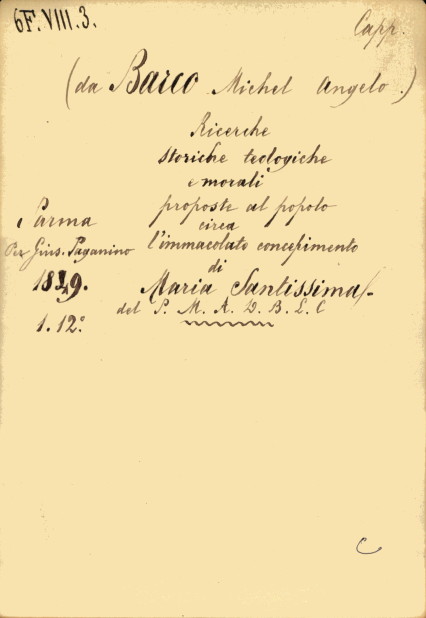 6F.VIII.3.
Capp.
(da Barco Michel Angelo.)
Ricerche
storiche teologiche
e morali
proposte al popolo
circa
l'immacolato concepimento
di
Maria Santissima
del P. M. A. D. B. L. C
Parma
Per Gius. Paganino
1849.
1. 12.°
C